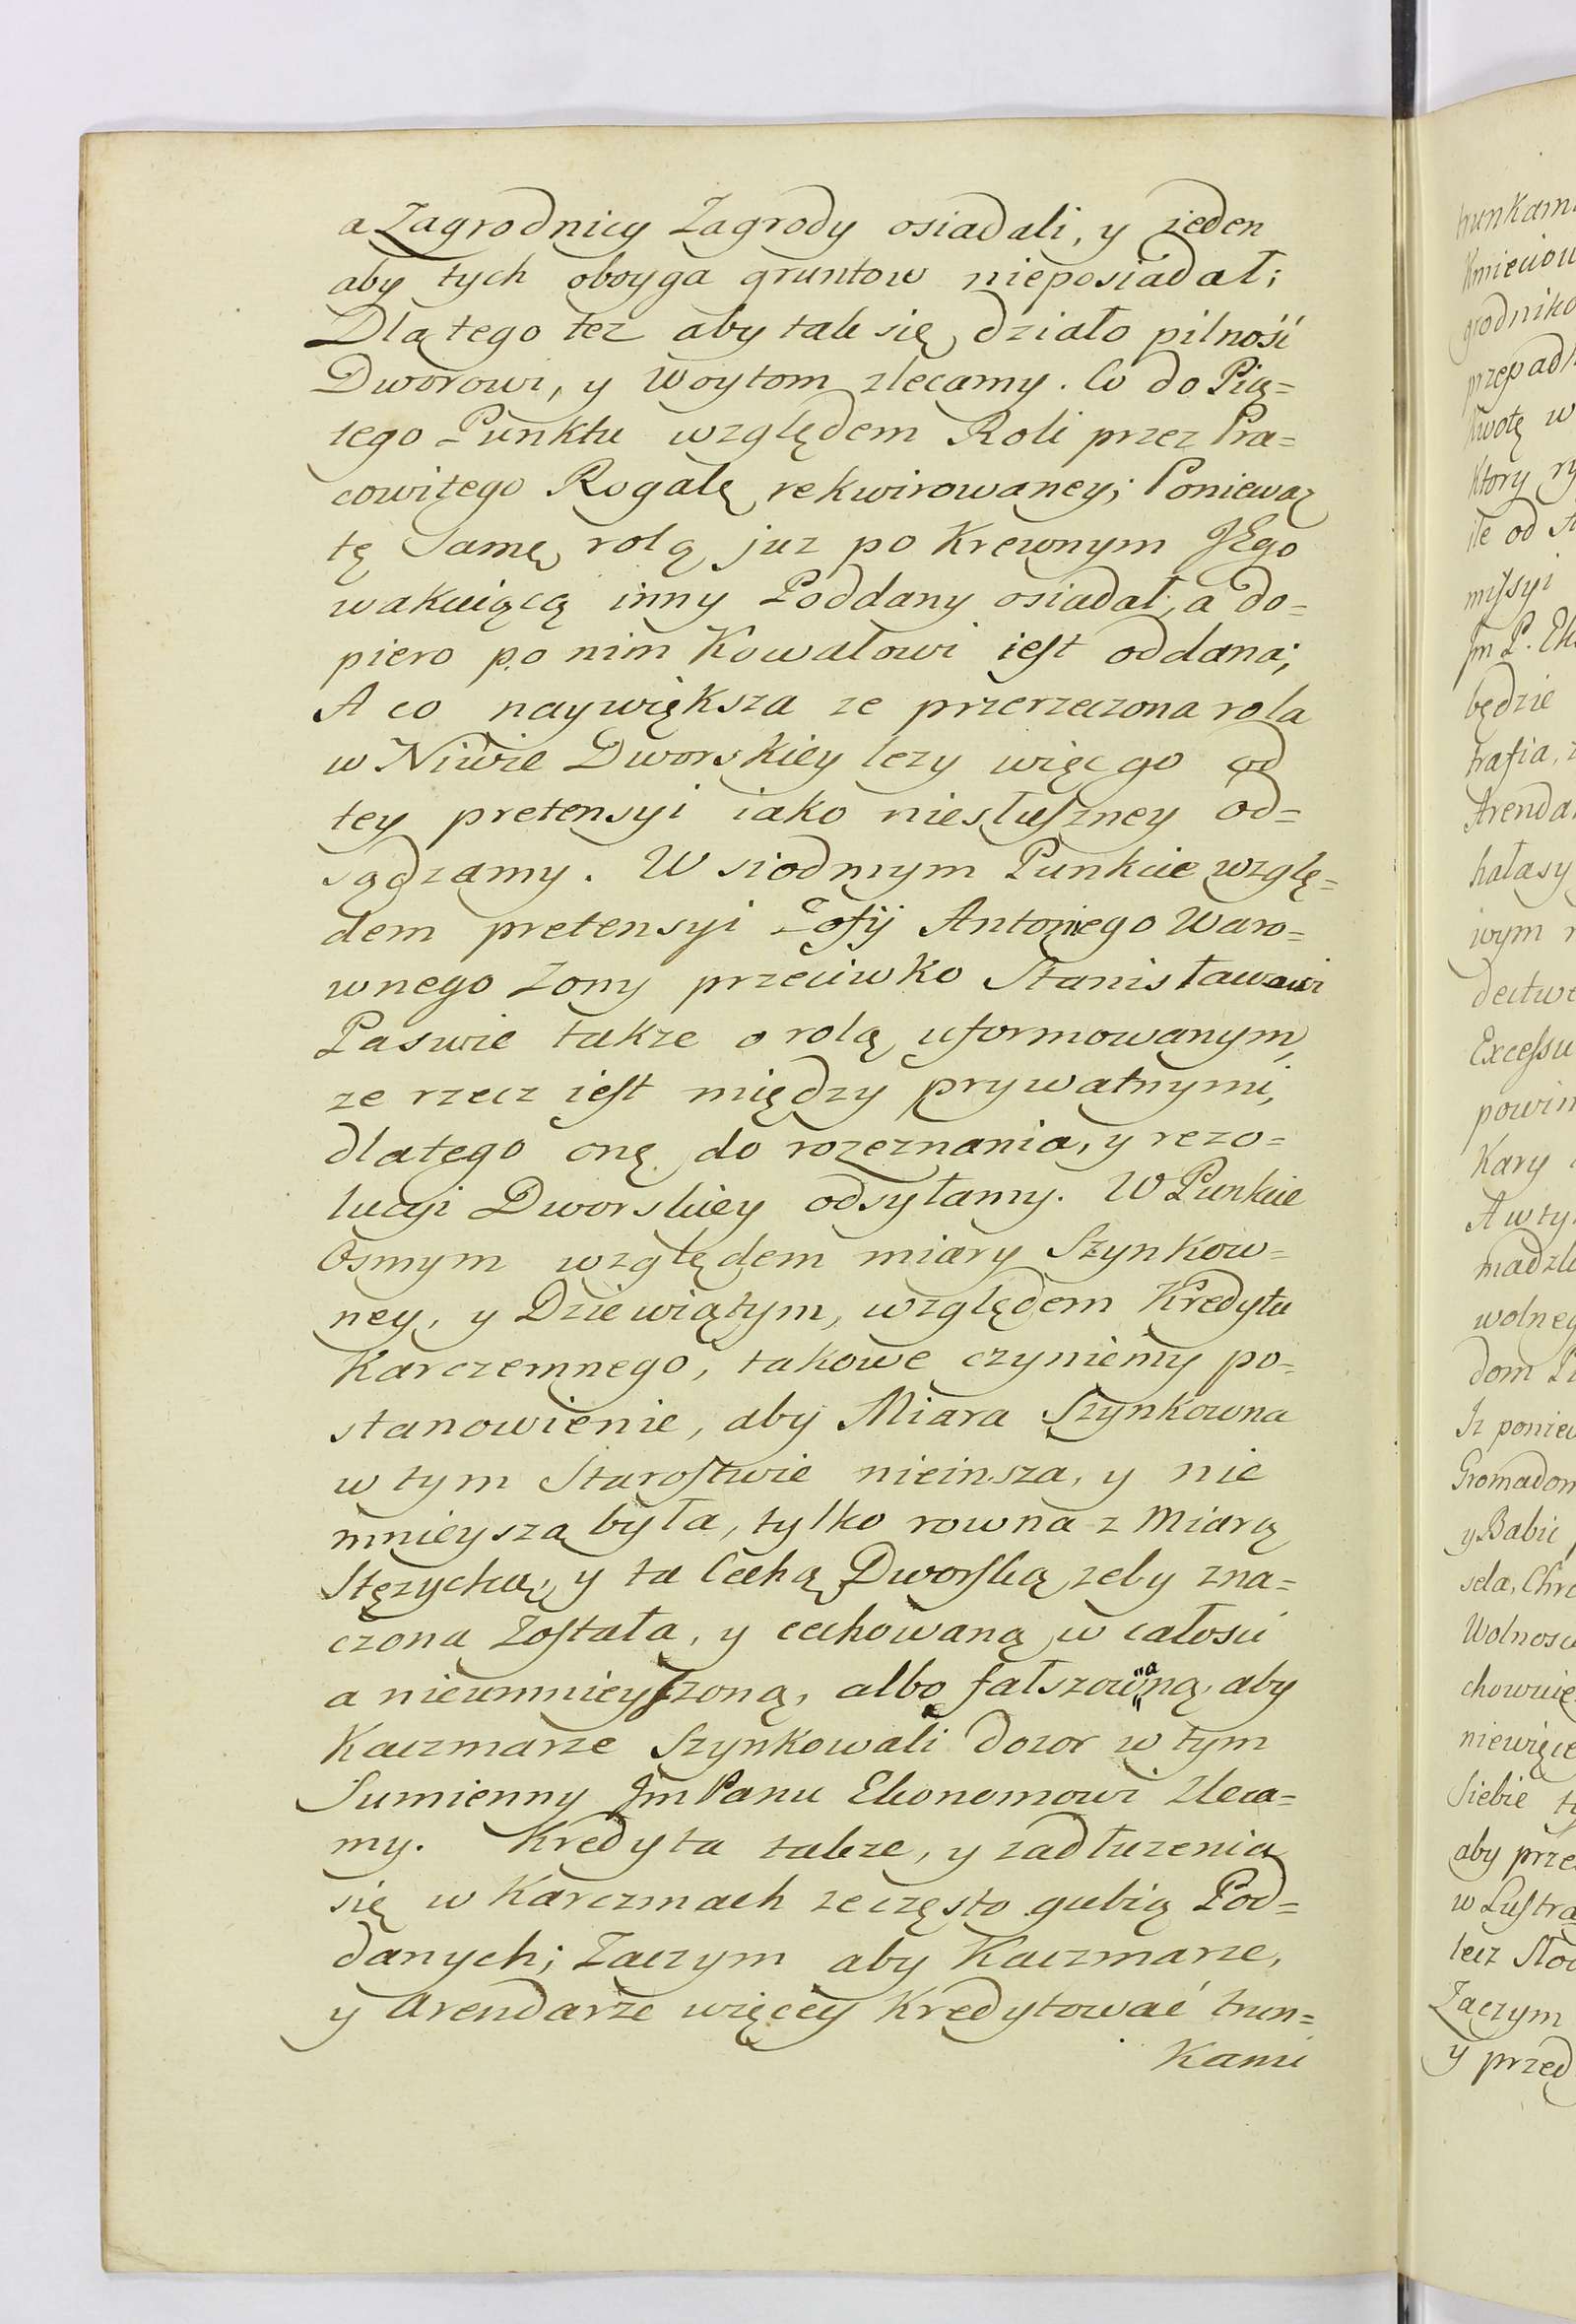 a Zagrodnicy Zagrody osiadali, y ieden
aby tych oboyga gruntow nieposiadał;
Dla tego tez aby tak się działo pilność
Dworowi, y Woytom zlecamy. Co do Pią=
tego Punktu względem Roli przez Pra=
cowitego Rogalę rekwirowaney; Poniewaz
tę Samę rolą juz po Krewnym JEgo
wakuiącą inny Poddany osiadał, a do=
piero po nim Kowalowi iest oddana;
A co naywiększa ze przerzeczona rola
w Niwie Dworskiey lezy więc go od
tey pretensyi iako niesłuszney od=
sądzamy. W siodmym Punkcie wzglę=
dem pretensyi Zofij Antoniego Waro=
wnego Zony przeciwko Stanisławowi
Paswie takze o rolą uformowanym,
ze rzecz iest między prywatnymi,
dlatego onę do rozeznania, y rezo=
lucyi Dworskiey odsyłamy. W Punkcie
Osmym względem miary Szynkow=
ney, y Dziewiątym, względem Kredytu
Karczemnego, takowe czyniemy po=
stanowienie, aby Miara Szynkowna
w tym Starostwie nieinsza, y nie
mnieysza była, tylko rowna z Miarą
Stęzycką, y ta Cechą Dworską zeby zna=
czona Została, y cechowaną w całosci
a nieumnieyszoną, albo fałszowaną, aby
Kaczmarze Szynkowali dozor w tym
Sumienny Jm Panu Ekonomowi Zleca=
my. Kredyta takze, y zadłuzenia
się w Karczmach ze często gubią Pod=
danych; Zaczym aby Kaczmarze,
y Arendarze więcey Kredytować trun=
Kami
trunkami
Kmieciow
grodniko
przepadk
Kwotę w
Ktory ry
ile od
missyi
Jm P. Ek
będzie
trafia, z
Arenda
hałasy
iwym
dectwe
Excessu
powin
Kary
A w ty
madzk
wolneg
dom
Iz poniew
Gromadom
y Babic
sela, Chrz
Wolnosc
chowuię
niewięce
Siebie
aby prze
w Lustra
lecz
Zaczym
y przed